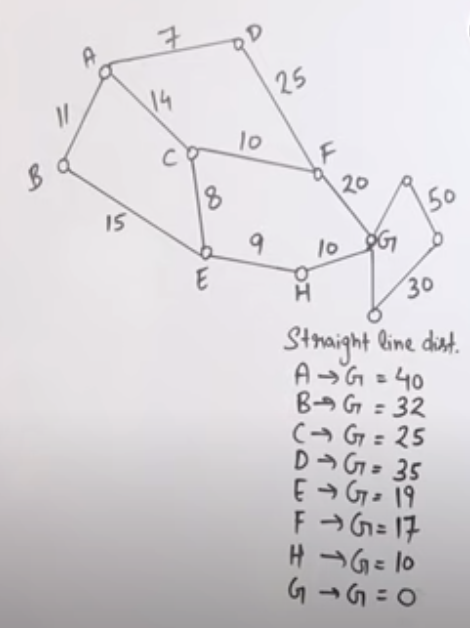 7
D
A
25
11
14
10
F
C
B
20
50
8
15
9
10
G
E
H
30
Straight line dist.
A → G = 40
B → G = 32
C → G = 25
D → G = 35
E → G = 19
F → G = 17
H → G = 10
G → G = 0